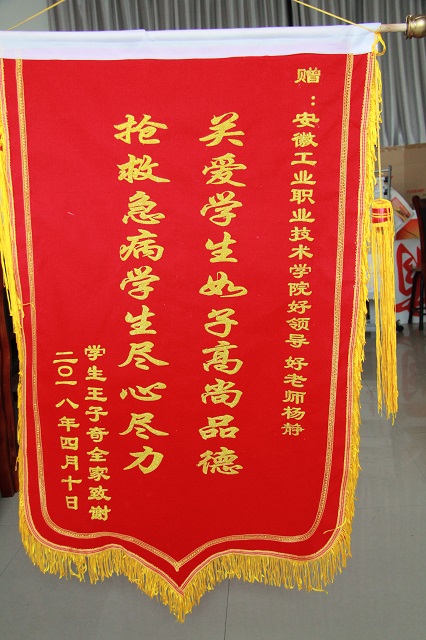 赠：安徽工业职业技术学院好领导 好老师杨静
关爱学生如子高尚品德
抢救急病学生尽心尽力
学生王子奇全家致谢
二〇一八年四月十日